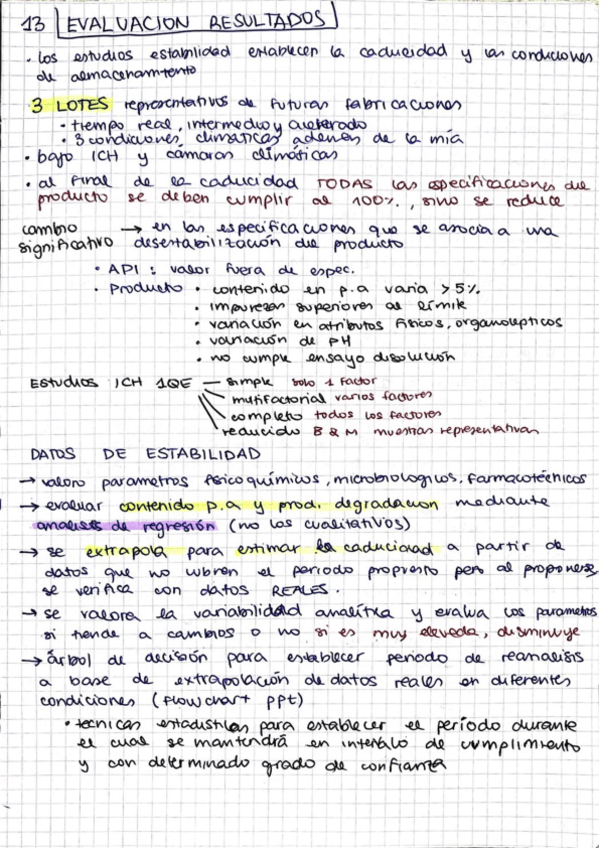 13 EVALUACION RESULTADOS
· los estudios estabilidad establecen la caducidad y las condiciones
de almacenamiento
3 LOTES representativos de futuras fabricaciones
· tiempo real, intermedio y acelerado
· 3 condiciones climáticas además de la mía
· bajo ICH y cámaras climáticas
· al final de la caducidad TODAS las especificaciones del
producto se deben cumplir al 100%, sino se reduce
cambio significativo → en las especificaciones que se asocia a una
desestabilización del producto
· API : valor fuera de espec.
· Producto · contenido en p.a varia > 5%
· impurezas superiores al límite
· variación en atributos físicos, organolepticos
· variación de PH
· no cumple ensayo disolución
Estudios ICH 1QE — simple solo 1 factor
multifactorial varios factores
completo todos los factores
reducido B & M muestras representativas
DATOS DE ESTABILIDAD
→ valoro parametros fisicoquímicos, microbiologicos, farmacotécnicos
→ evaluar contenido p.a y prod. degradacion mediante
analisis de regresión (no los cualitativos)
→ se extrapola para estimar la caducidad a partir de
datos que no cubren el periodo propuesto pero al proponerse
se verifica con datos REALES.
→ se valora la variabilidad analítica y evalua los parametros
si tiende a cambios o no si es muy elevada, disminuye
→ árbol de decisión para establecer periodo de reanalisis
a base de extrapolación de datos reales en diferentes
condiciones (flowchart ppt)
· tecnicas estadisticas para establecer el período durante
el cual se mantendrá en intervalo de cumplimiento
y con determinado grado de confianza